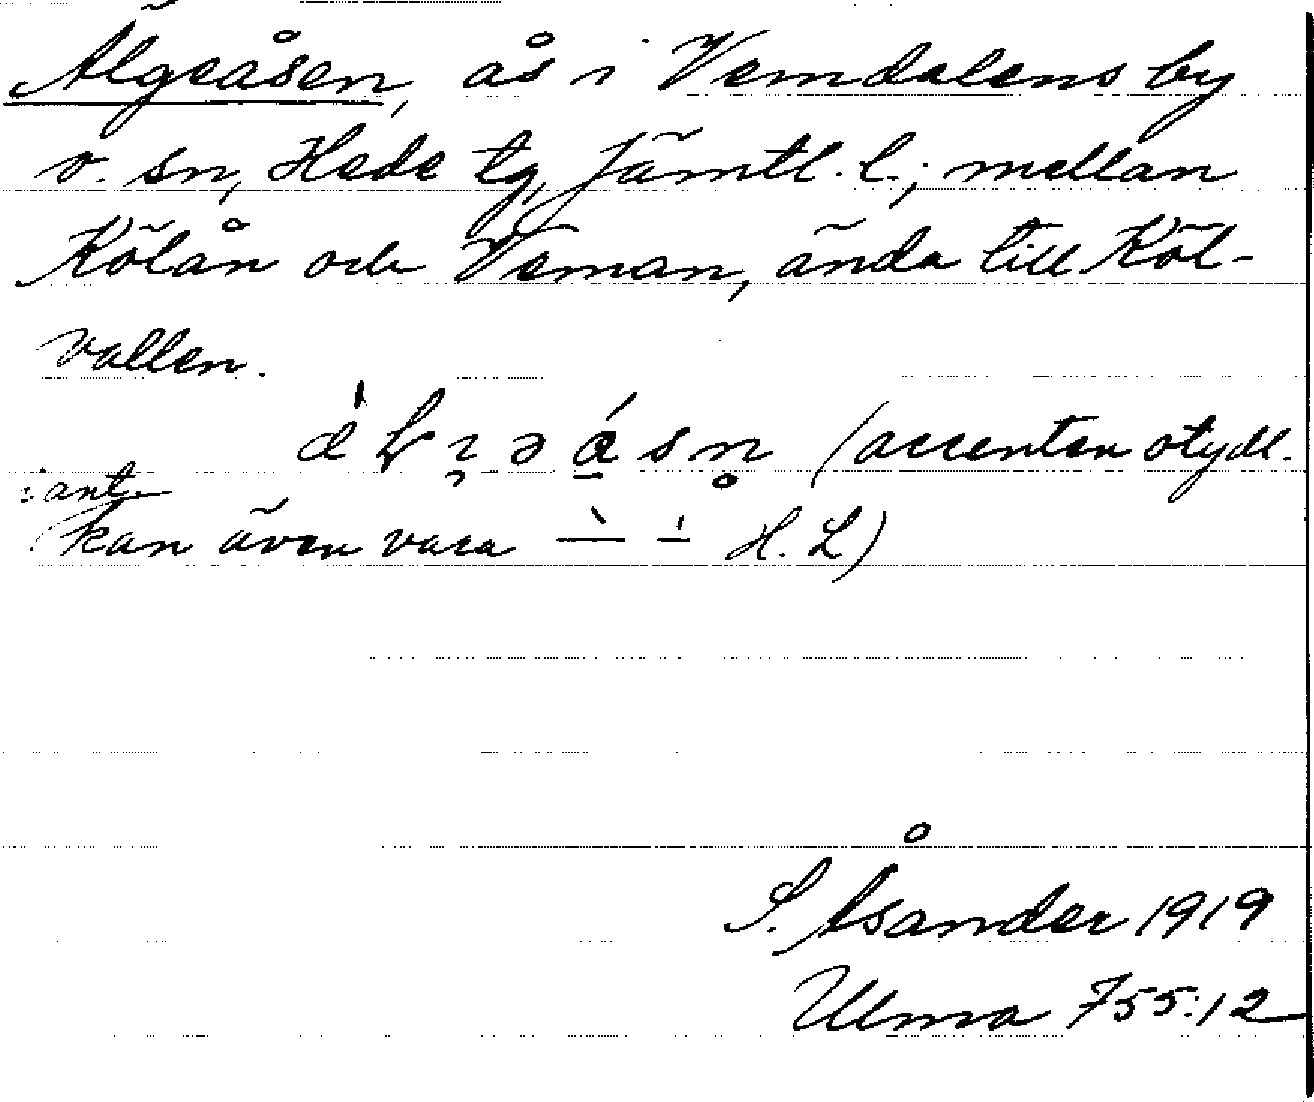 Älgeåsen, ås i Vemdalens by
o. sn, Hede tg, Jämtl. l.; mellan
Kölån och Veman, ända till Köl-
vallen.
(accenten otydl.
kan även vara H. L)
S. Åsander 1919
Ulma 755:12